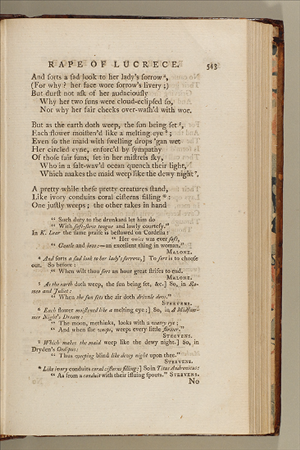 RAPE OF LUCRECE. 513
And sorts a sad look to her lady's sorrow⁴,
(For why? her face wore sorrow's livery;)
But durst not ask of her audaciously
Why her two suns were cloud-eclipsed so,
Nor why her fair cheeks over-wash'd with woe.
But as the earth doth weep, the sun being set⁵,
Each flower moisten'd like a melting eye⁶;
Even so the maid with swelling drops 'gan wet
Her circled eyne, enforc'd by sympathy
Of those fair suns, set in her mistress' sky,
Who in a salt-wav'd ocean quench their light,
Which makes the maid weep like the dewy night⁷.
A pretty while these pretty creatures stand,
Like ivory conduits coral cisterns filling⁸:
One justly weeps; the other takes in hand
" Such duty to the drunkard let him do
" With soft-slow tongue and lowly courtesy."
In K. Lear the same praise is bestowed on Cordelia:
" Her voice was ever soft,
" Gentle and low;—an excellent thing in woman."
MALONE.
⁴ And sorts a sad look to her lady's sorrow,] To sort is to choose
out. So before:
" When wilt thou sort an hour great strifes to end.
MALONE.
⁵ As the earth doth weep, the sun being set, &c.] So, in Ro-
meo and Juliet:
" When the sun sets the air doth drizzle dew."
STEEVENS.
⁶ Each flower moisten'd like a melting eye;] So, in A Midsum-
mer Night's Dream:
" The moon, methinks, looks with a watery eye;
" And when she weeps, weeps every little flower."
STEEVENS.
⁷ Which makes the maid weep like the dewy night.] So, in
Dryden's Oedipus:
" Thus weeping blind like dewy night upon thee."
STEEVENS.
⁸ Like ivory conduits coral cisterns filling:] So in Titus Andronicus:
" As from a conduit with their issuing spouts." STEEVENS.
No